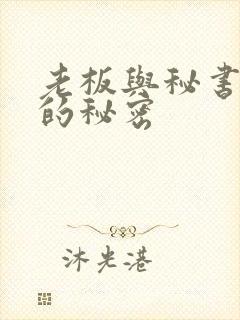 老板與秘書
的秘密
沐光港